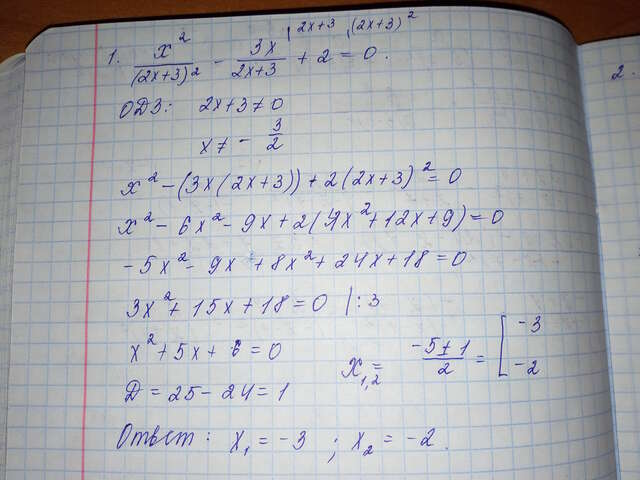 1. x²/(2x+3)² - 3x/(2x+3) |2x+3 + 2 |(2x+3)² = 0.
ОДЗ: 2x+3≠0
x ≠ - 3/2
x² - (3x(2x+3)) + 2(2x+3)² = 0
x² - 6x² - 9x + 2(4x² + 12x + 9) = 0
-5x² - 9x + 8x² + 24x + 18 = 0
3x² + 15x + 18 = 0 |: 3
x² + 5x + 6 = 0
D = 25 - 24 = 1
x₁,₂ = (-5 ± 1)/2 = [ -3
-2
Ответ: x₁ = -3 ; x₂ = -2.
2.